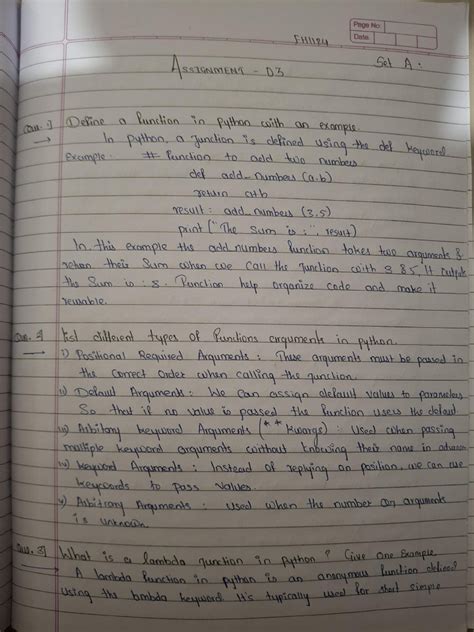 Page No:
Date
5/11/24
Assignment - D3
Set A:
Que. 1) Define a function in python with an example.
→ In python, a function is defined using the def keyword
Example # Function to add two numbers
def add_numbers (a.b)
return a+b
result: add_numbers (3,5)
print ("The Sum is :", result)
In this example the add numbers function takes two arguments &
return their Sum when we call the function with 3 & 5, It outputs
the Sum is : 8. Function help organize code and make it
reusable.
Que. 2) List different types of functions arguments in python.
→ i) Positional Required Arguments : These arguments must be passed in
the correct Order when calling the function.
ii) Default Arguments : We Can assign default values to parameters
So that if no value is passed the function users the default.
iii) Arbitary keyword Arguments (** Kwargs) : Used when passing
multiple keyword arguments without knowing their name in advance
iv) Keyword Arguments : Instead of replying on position, we can use
keywords to pass values.
v) Arbitrary Arguments : Used when the number arguments
is unknown.
Que. 3) What is a lambda function in python ? Give one Example
→ A lambda function in python is an anonymous function defined
using the lambda keyword. It's typically used for short simple